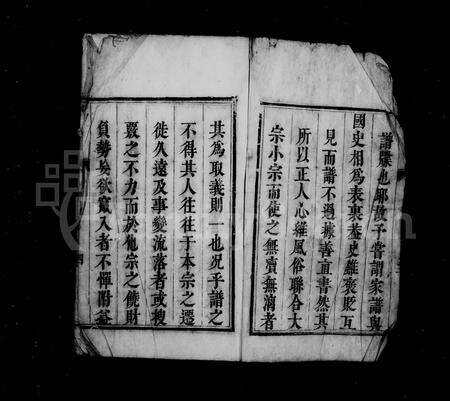 譜牒也耶故予嘗謂家譜與
國史相為表裏葢史雖褒貶互
見而譜不過揚善宜書然其
所以正人心維風俗聯合大
宗小宗而使之無瀆無淆者
其為取義則一也況乎譜之
不得其人往往于本宗之遷
徙久遠及事變流落者或搜
覈之不力而於他宗之饒財
負勢吳欲竄入者不憚附益